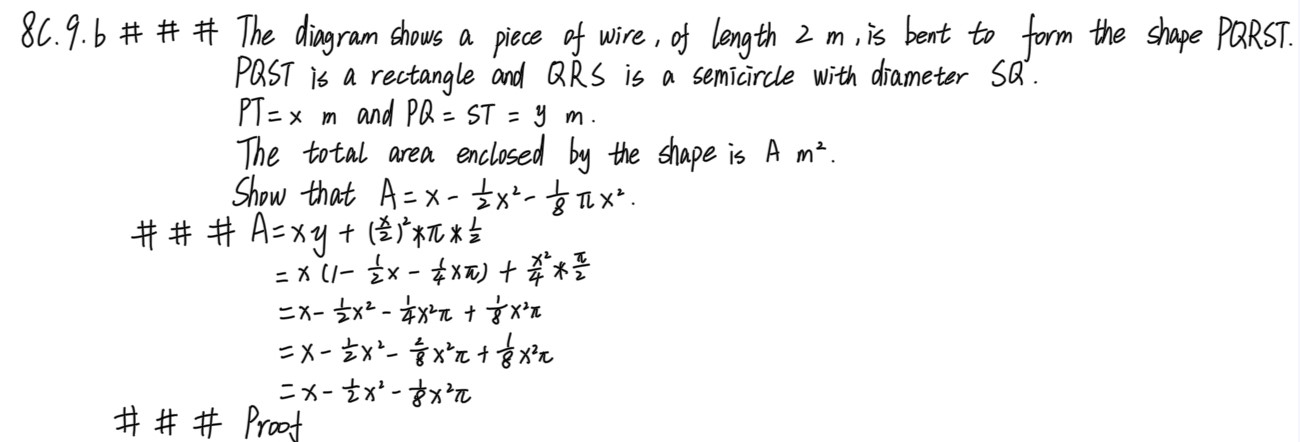 8C.9.b # # # The diagram shows a piece of wire, of length 2 m, is bent to form the shape PQRST.
PQST is a rectangle and QRS is a semicircle with diameter SQ.
PT = x m and PQ = ST = y m.
The total area enclosed by the shape is A m².
Show that A = x - 1/2 x² - 1/8 π x².
# # # A = xy + (x/2)² * π * 1/2
= x (1 - 1/2 x - 1/4 xπ) + x²/4 * π/2
= x - 1/2 x² - 1/4 x²π + 1/8 x²π
= x - 1/2 x² - 2/8 x²π + 1/8 x²π
= x - 1/2 x² - 1/8 x²π
# # # Proof